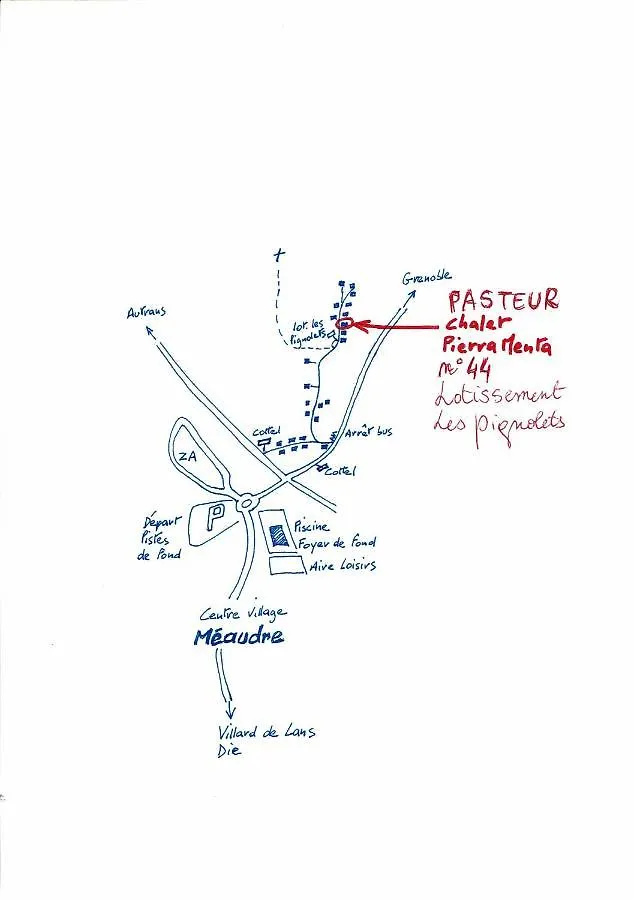 Grenoble
Autrans
Lot. Les
Pignolets
PASTEUR
Chalet
Pierra Menta
n° 44
Lotissement
Les pignolets
Cottel
Arrêt bus
ZA
Cottel
P
Départ
Pistes
de Fond
Piscine
Foyer de Fond
Aire Loisirs
Centre village
Méaudre
Villard de Lans
Die